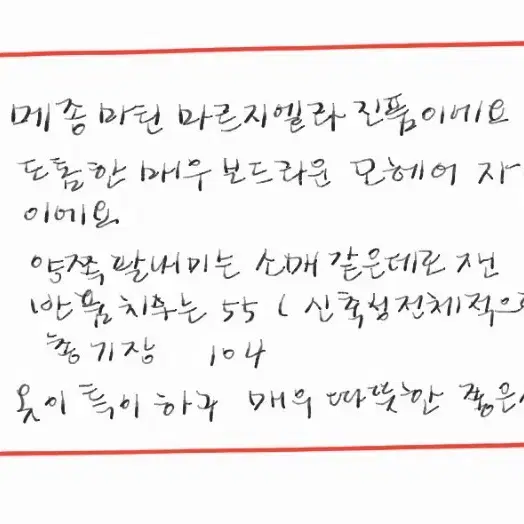 메종 마틴 마르지엘라 진품이에요
도톰한 매우 보드라운 모헤어 자
이에요
양쪽 팔내미는 소매 같은데로 잰
반품치수는 55 ( 신축성전체적으
총기장 104
옷이 특이하구 매우 따뜻한 좋은